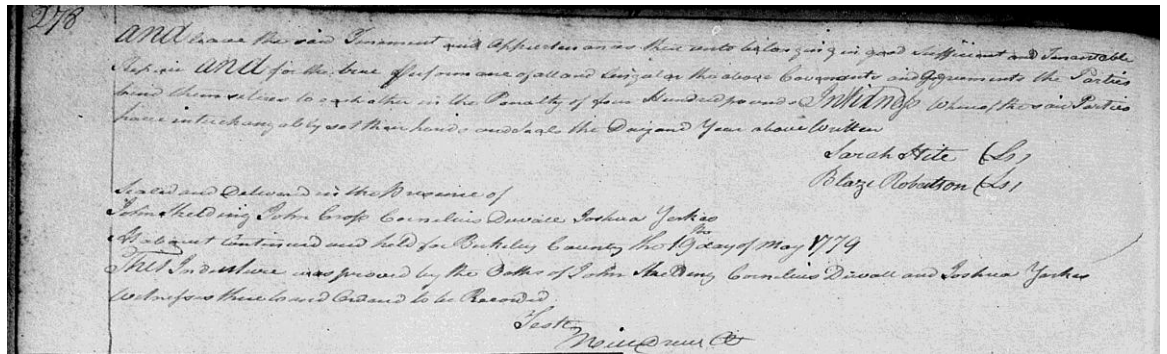 278
And leave the said Tenement and Appurtenances thereunto belonging in good Sufficient and Tenantable
Repair And for the true Performance of all and Singular the above Covenants and Agreements the Parties
bind themselves to each other in the Penalty of four Hundred pounds In Witness Whereof the said Parties
have interchangably set their hands and Seals the Day and Year above Written
Sarah Hite (Ls)
Blaze Robertson (Ls)
Sealed and Delivered in the Presence of
John Shelding John Cross Cornelius Duvall Joshua Yorkes
At a Court Continued and held for Berkeley County the 19th day of May 1779
This Indenture was proved by the Oaths of John Shelding Cornelius Duvall and Joshua Yorkes
Witnesses thereto and Ordered to be Recorded
Teste